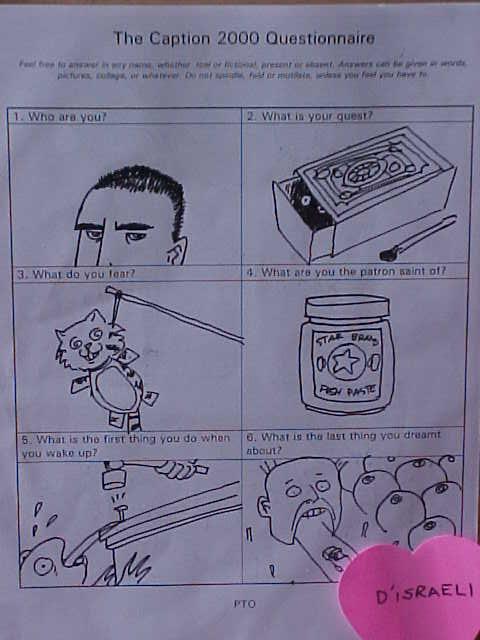 The Caption 2000 Questionnaire
Feel free to answer in any name, whether real or fictional, present or absent. Answers can be given in words,
pictures, collage, or whatever. Do not spindle, fold or mutilate, unless you feel you have to.
1. Who are you?
2. What is your quest?
3. What do you fear?
4. What are you the patron saint of?
STAR BRAND
FISH PASTE
5. What is the first thing you do when
you wake up?
6. What is the last thing you dreamt
about?
D'ISRAELI
PTO